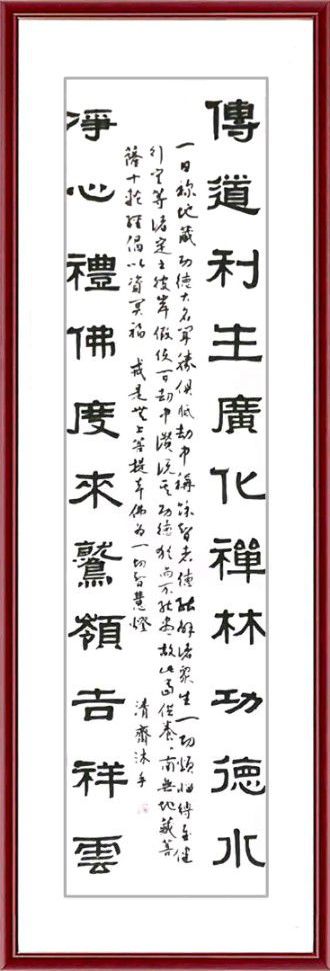 傳道利主廣化禪林功德水
一日稱地藏功德大名聞勝俱胝劫中稱餘智者德能解諸眾生一切煩惱縛至健
行定等諸定至彼岸假使百劫中讚說其功德猶尚不能盡故皆當供養南無地藏菩
薩十輪經偈以資冥福 戒是無上菩提本佛為一切智慧燈
清齋沐手
淨心禮佛度來鷲嶺吉祥雲